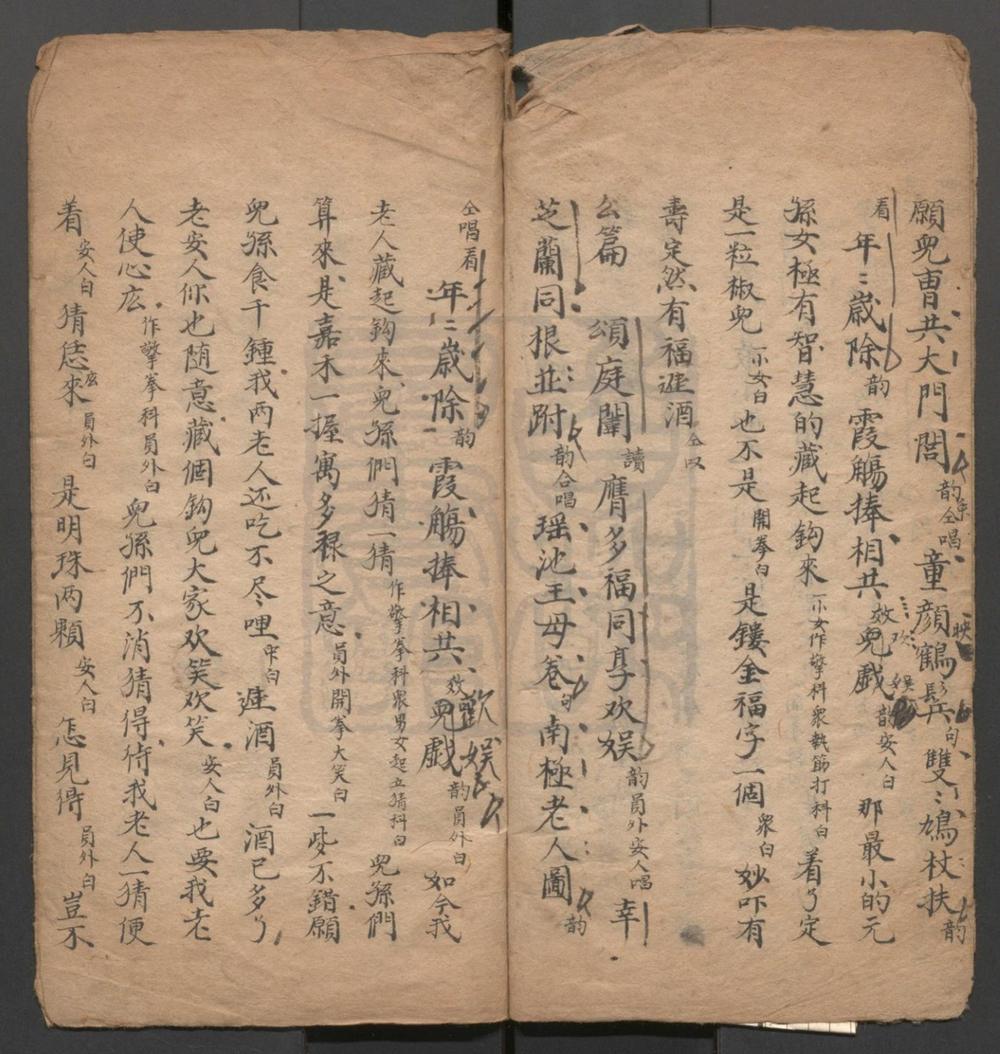 願兒曹共大門閭韵仝唱童顔鶴髩句雙〻鳩杖扶韵
看年〻歲除韵霞觴捧相共效兒戲歡娱韵安人白那最小的元
孫女極有智慧的藏起鈎來小女作擎科衆執筯打科白着了定
是一粒椒兒小女白也不是開拳白是鏤金福字一個衆白妙吓有
壽定然有福遞酒仝
公篇頌庭闈讀膺多福同享欢娱韵員外安人唱幸
芝蘭同根並跗韵合唱瑶池王母卷句南極老人圖韵
仝唱看年〻歲除韵霞觴捧相共效兒戲歡娱韵員外白如今我
老人藏起鈎來兒孫們猜一猜作擎拳科衆男女起立猜科白兒孫們
算來是嘉禾一握寓多禄之意員外開拳大笑白一些不錯願
兒孫食千鍾我两老人还吃不尽哩衆白遞酒員外白酒已多了
老安人你也随意藏個鈎兒大家欢笑欢笑安人白也要我老
人使心広作擎拳科員外白兒孫們不消猜得待我老人一猜便
着安人白猜恁広來員外白是明珠两顆安人白怎見得員外白豈不